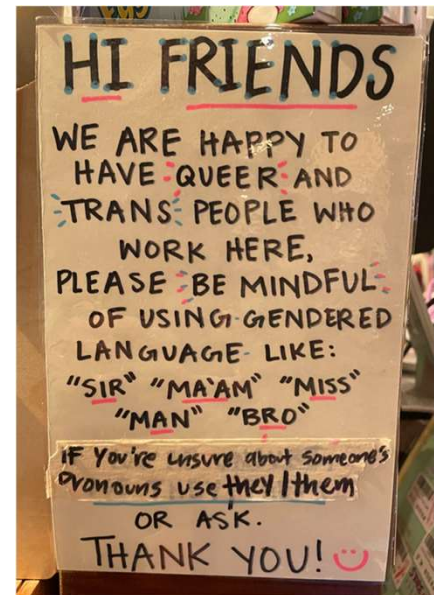 HI FRIENDS
WE ARE HAPPY TO
HAVE QUEER AND
TRANS PEOPLE WHO
WORK HERE,
PLEASE BE MINDFUL
OF USING GENDERED
LANGUAGE LIKE:
"SIR" "MA'AM" "MISS"
"MAN" "BRO"
IF You're unsure about someone's
Pronouns use they/them
OR ASK.
THANK YOU!